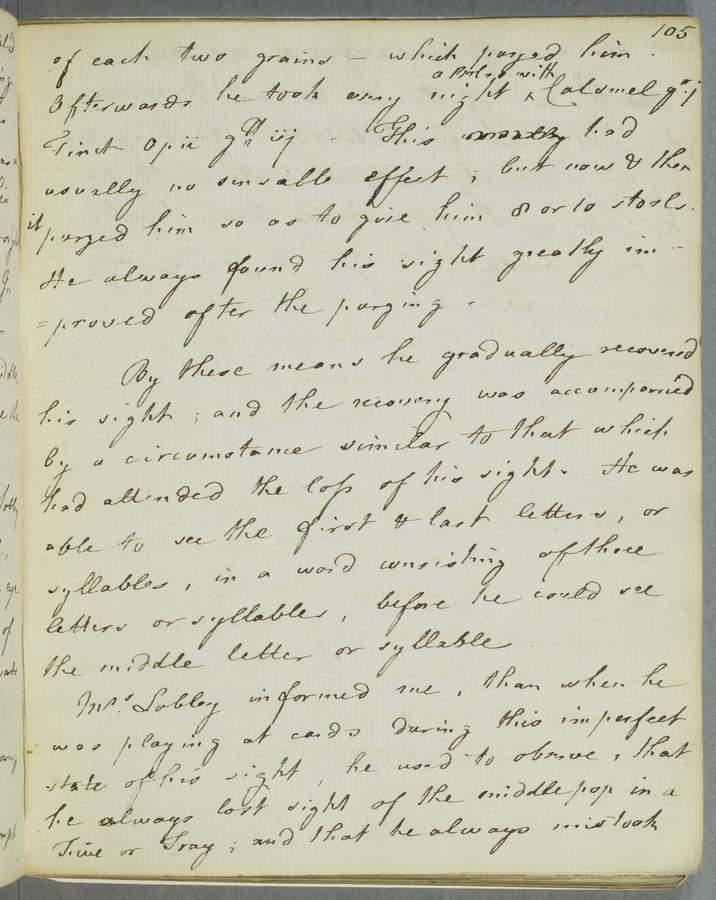 105
of each two grains – which purged him .
a Bolus with
Afterwards he took every night ^ Calomel gr.j
Tinct Opii gtt iij – This usually had
usually no sensible effect ; but now & then
it purged him so as to give him 8 or 10 stools.
He always found his sight greatly im-
=proved after the purging .
By these means he gradually recovered
his sight ; and the recovery was accompanied
by a circumstance similar to that which
had attended the loss of his sight. He was
able to see the first & last letters, or
syllables, in a word consisting of three
letters or syllables, before he could see
the middle letter or syllable
Mrs. Lobley informed me, than when he
was playing at cards during this imperfect
state of his sight, he used to observe, that
he always lost sight of the middle pop in a
Five or Tray ; and that he always mistook